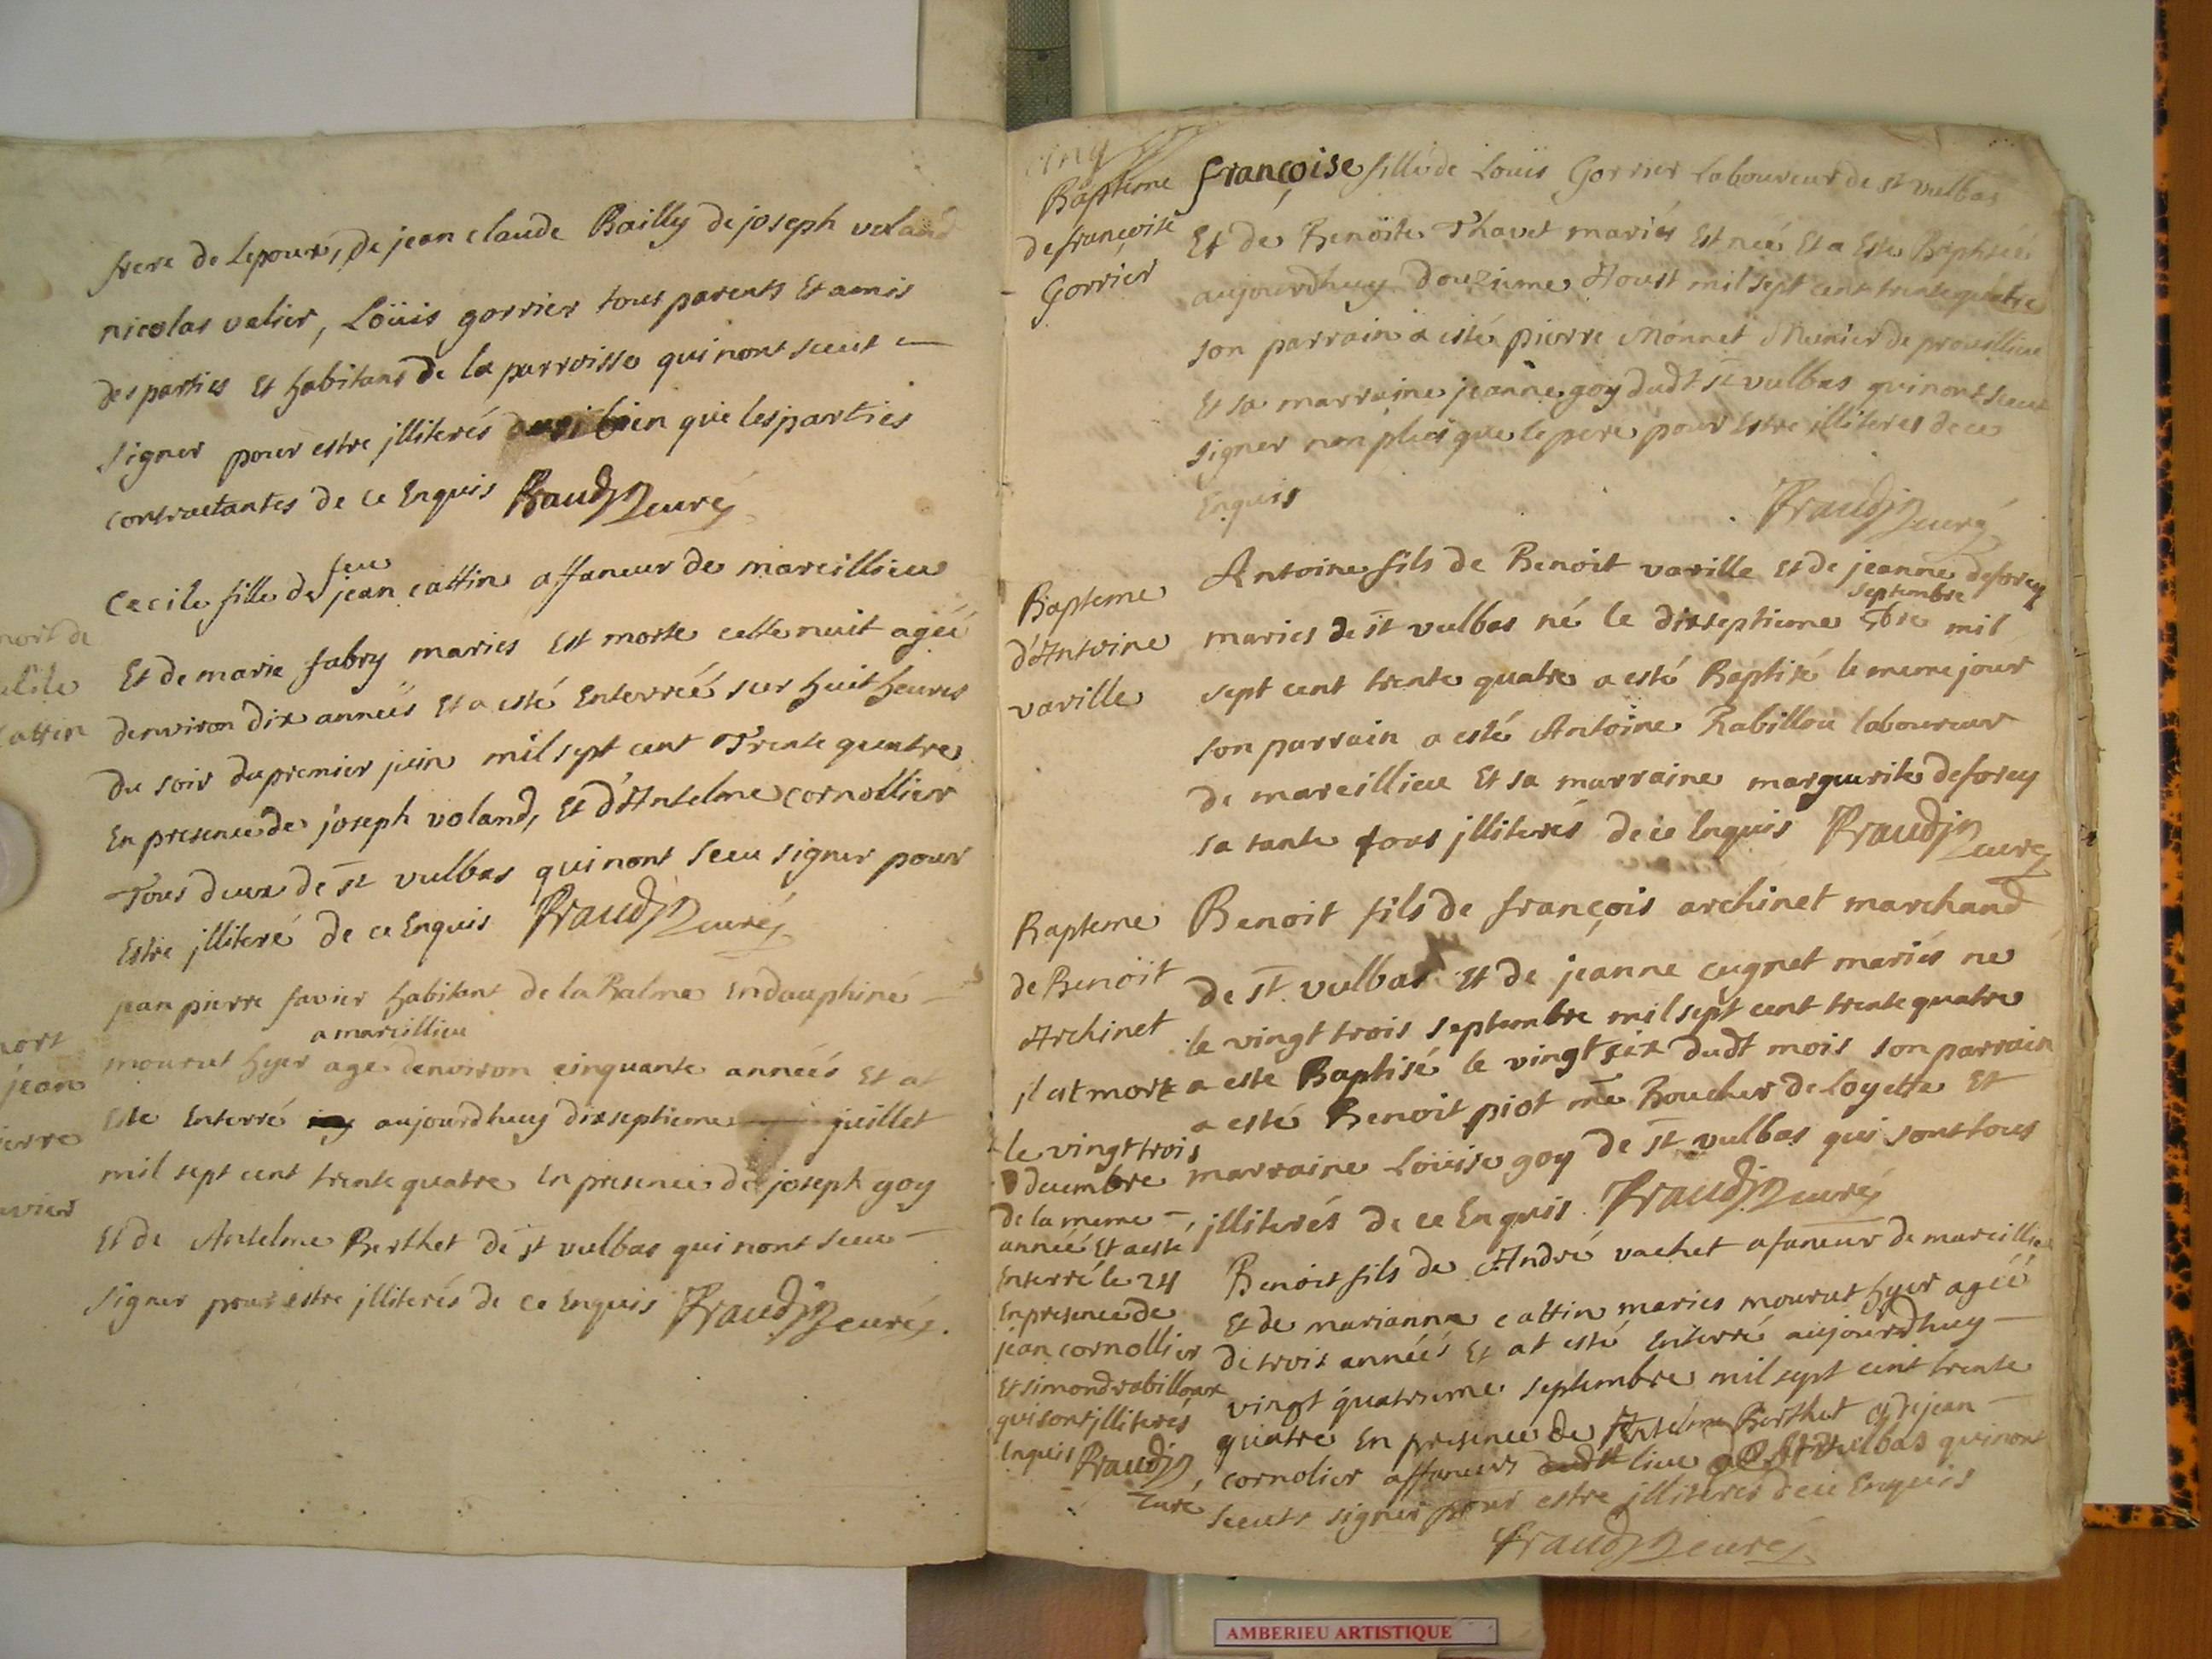 frere de Lepoux, de jean claude Bailly de joseph voland
nicolas valier, Loüis gorrier tous parents Et amis
des parties Et habitans de la parroisse qui nont sceut
signer pour estre jlliterés aussi bien que les parties
contractantes de ce Enquis Fraudin curé
mort de
Cecile
Cattin
feu
Cecile fille de jean cattin affaneur de marcillieu
Et de marie fabry maries Est morte cette nuit ageé
denviron dix anneés Et a esté Enterreé sur huit heures
du soir du premier juin mil sept cent Trente quatre
En presence de joseph voland, Et d'Antelme cornollier
Tous deux de st vulbas qui nont sceu signer pour
Estre jlliteré de ce Enquis Fraudin curé
mort
jean
pierre
favier
jean pierre favier habitant de la Balme En dauphiné
a marcillieu
mourut hyer age denviron cinquante anneés Et at
Este Enterré aujourdhuy dixseptieme juillet
mil sept cent trente quatre En presence de joseph goy
Et de Antelme Berthet de st vulbas qui nont sceu
signer pour estre jlliterés de ce Enquis Fraudin curé.
Bapteme
de françoise
Gorrier
françoise fille de Louis Gorrier Laboureur de st vulbas
Et de Benoite Thavet mariés Est neé Et a Esté Baptiseé
aujourdhuy douzieme Aoust mil sept cent trente quatre
son parrain a esté pierre Monnet Munier de proullieu
Et sa marraine jeanne goy dudt st vulbas qui nont sceut
signer non plus que le pere pour Estre jlliteres de ce
Enquis
Fraudin curé
Bapteme
d'Antoine
varille
Antoine fils de Benoit varille Et de jeanne deforey
septembre
maries de st vulbas né le dixseptieme 7bre mil
sept cent trente quatre a esté Baptisé le meme jour
son parrain a esté Antoine Rabillou laboureur
de marcillieu Et sa marraine marguerite deforey
sa tante tous jlliterés de ce Enquis Fraudin curé
Bapteme
de Benoit
Archinet
Benoit fils de françois archinet marchand
de st vulbas Et de jeanne cugnet mariés ne
le vingt trois septembre mil sept cent trente quatre
a este Baptisé le vingt six dudt mois son parrain
a esté Benoit piot me Boucher de Loyette Et
marraine Loüise goy de st vulbas qui sont tous
jlliterés de ce Enquis Fraudin curé
il est mort
le vingt trois
decembre
de la meme
anneé Et a esté
Enterré le 24
En presence de
jean cornollier
Et simond rabilloux
qui sont jlliterés
Enquis Fraudin
curé
Benoit fils de André vachet afaneur de marcillieu
Et de marianne cattin maries mourut hyer ageé
de trois anneés Et at esté Enterré aujourdhuy
vingt quatrieme septembre mil sept cent trente
quatre En presence de Antelme Berthet et de jean
cornolier affaneurs dudt lieu de st vulbas qui nont
sceuts signer pour estre jlliteres de ce Enquis
Fraudin curé
AMBERIEU ARTISTIQUE